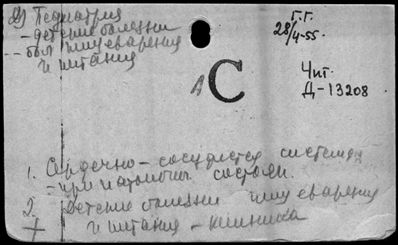 2) Педиатрия
- детские болезни
- бол. пищеварения
и питания
Г.Г.
28/4-55.
А
С
Чит.
Д-13208
1. Сердечно-сосудистая система
- при патолог. состоян.
2. Детские болезни пищеварения
и питания - клиника